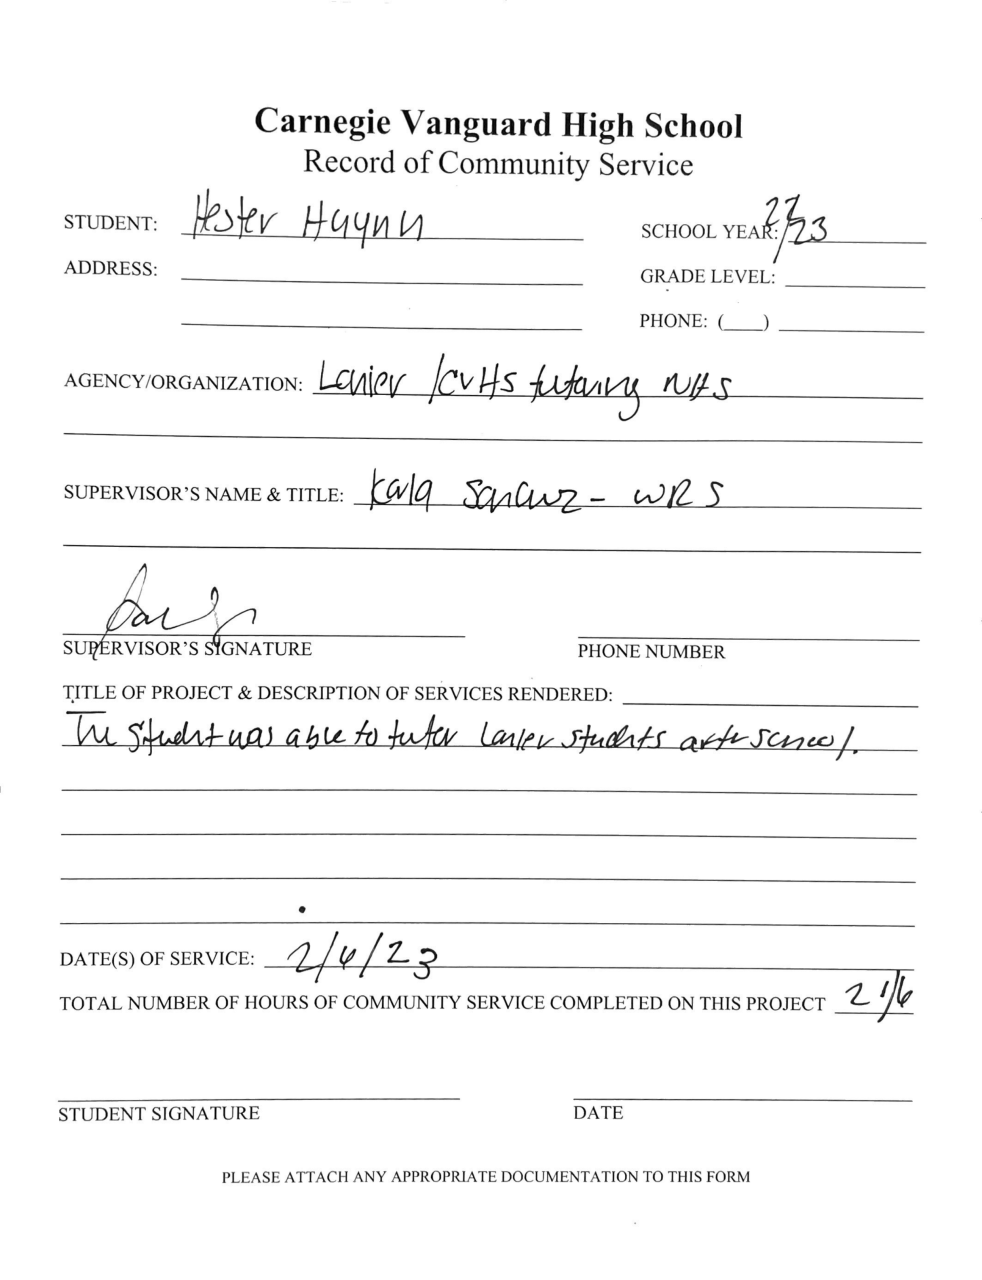 Carnegie Vanguard High School
Record of Community Service
STUDENT: Hester Huynh SCHOOL YEAR: 22/23
ADDRESS: GRADE LEVEL:
PHONE: (   )
AGENCY/ORGANIZATION: Lanier /CVHS tutoring NHS
SUPERVISOR'S NAME & TITLE: Karla - WRS
SUPERVISOR'S SIGNATURE PHONE NUMBER
TITLE OF PROJECT & DESCRIPTION OF SERVICES RENDERED:
The student was able to tutor Lanier students after school.
DATE(S) OF SERVICE: 2/6/23
TOTAL NUMBER OF HOURS OF COMMUNITY SERVICE COMPLETED ON THIS PROJECT 2 1/6
STUDENT SIGNATURE DATE
PLEASE ATTACH ANY APPROPRIATE DOCUMENTATION TO THIS FORM